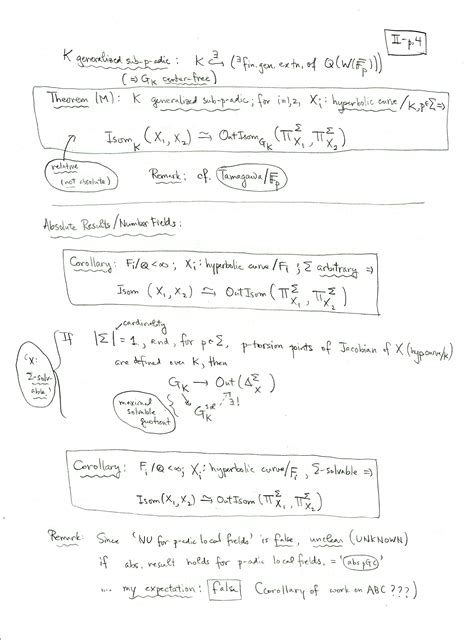 II-p.4
K generalized sub-p-adic : K ∃↪ (∃fin. gen. extn. of Q(W(F̄p)))
(⇒ G_K center-free)
Theorem (M): K generalized sub-p-adic; for i=1,2, Xi: hyperbolic curve/K, p∈Σ ⇒
Isom_K (X1, X2) ⥲ OutIsom_{G_K} (Π^Σ_{X1}, Π^Σ_{X2})
relative (not absolute)
Remark: cf. Tamagawa/F̄p
Absolute Results/Number Fields:
Corollary: Fi/Q < ∞; Xi: hyperbolic curve/Fi; Σ arbitrary ⇒
Isom (X1, X2) ⥲ OutIsom (Π^Σ_{X1}, Π^Σ_{X2})
cardinality
If |Σ| = 1, and, for p∈Σ, p-torsion points of Jacobian of X (hyp curve/K)
'X: Σ-solvable'
are defined over K, then
G_K → Out(Δ^Σ_X)
maximal solvable quotient
G_K^sol ∃!
Corollary: Fi/Q < ∞; Xi: hyperbolic curve/Fi, Σ-solvable ⇒
Isom(X1, X2) ⥲ OutIsom (Π^Σ_{X1}, Π^Σ_{X2})
Remark: Since 'NU for p-adic local fields' is false, unclear (UNKNOWN)
if abs. result holds for p-adic local fields. = 'abs pGC'
... my expectation: false (corollary of work on ABC ???)